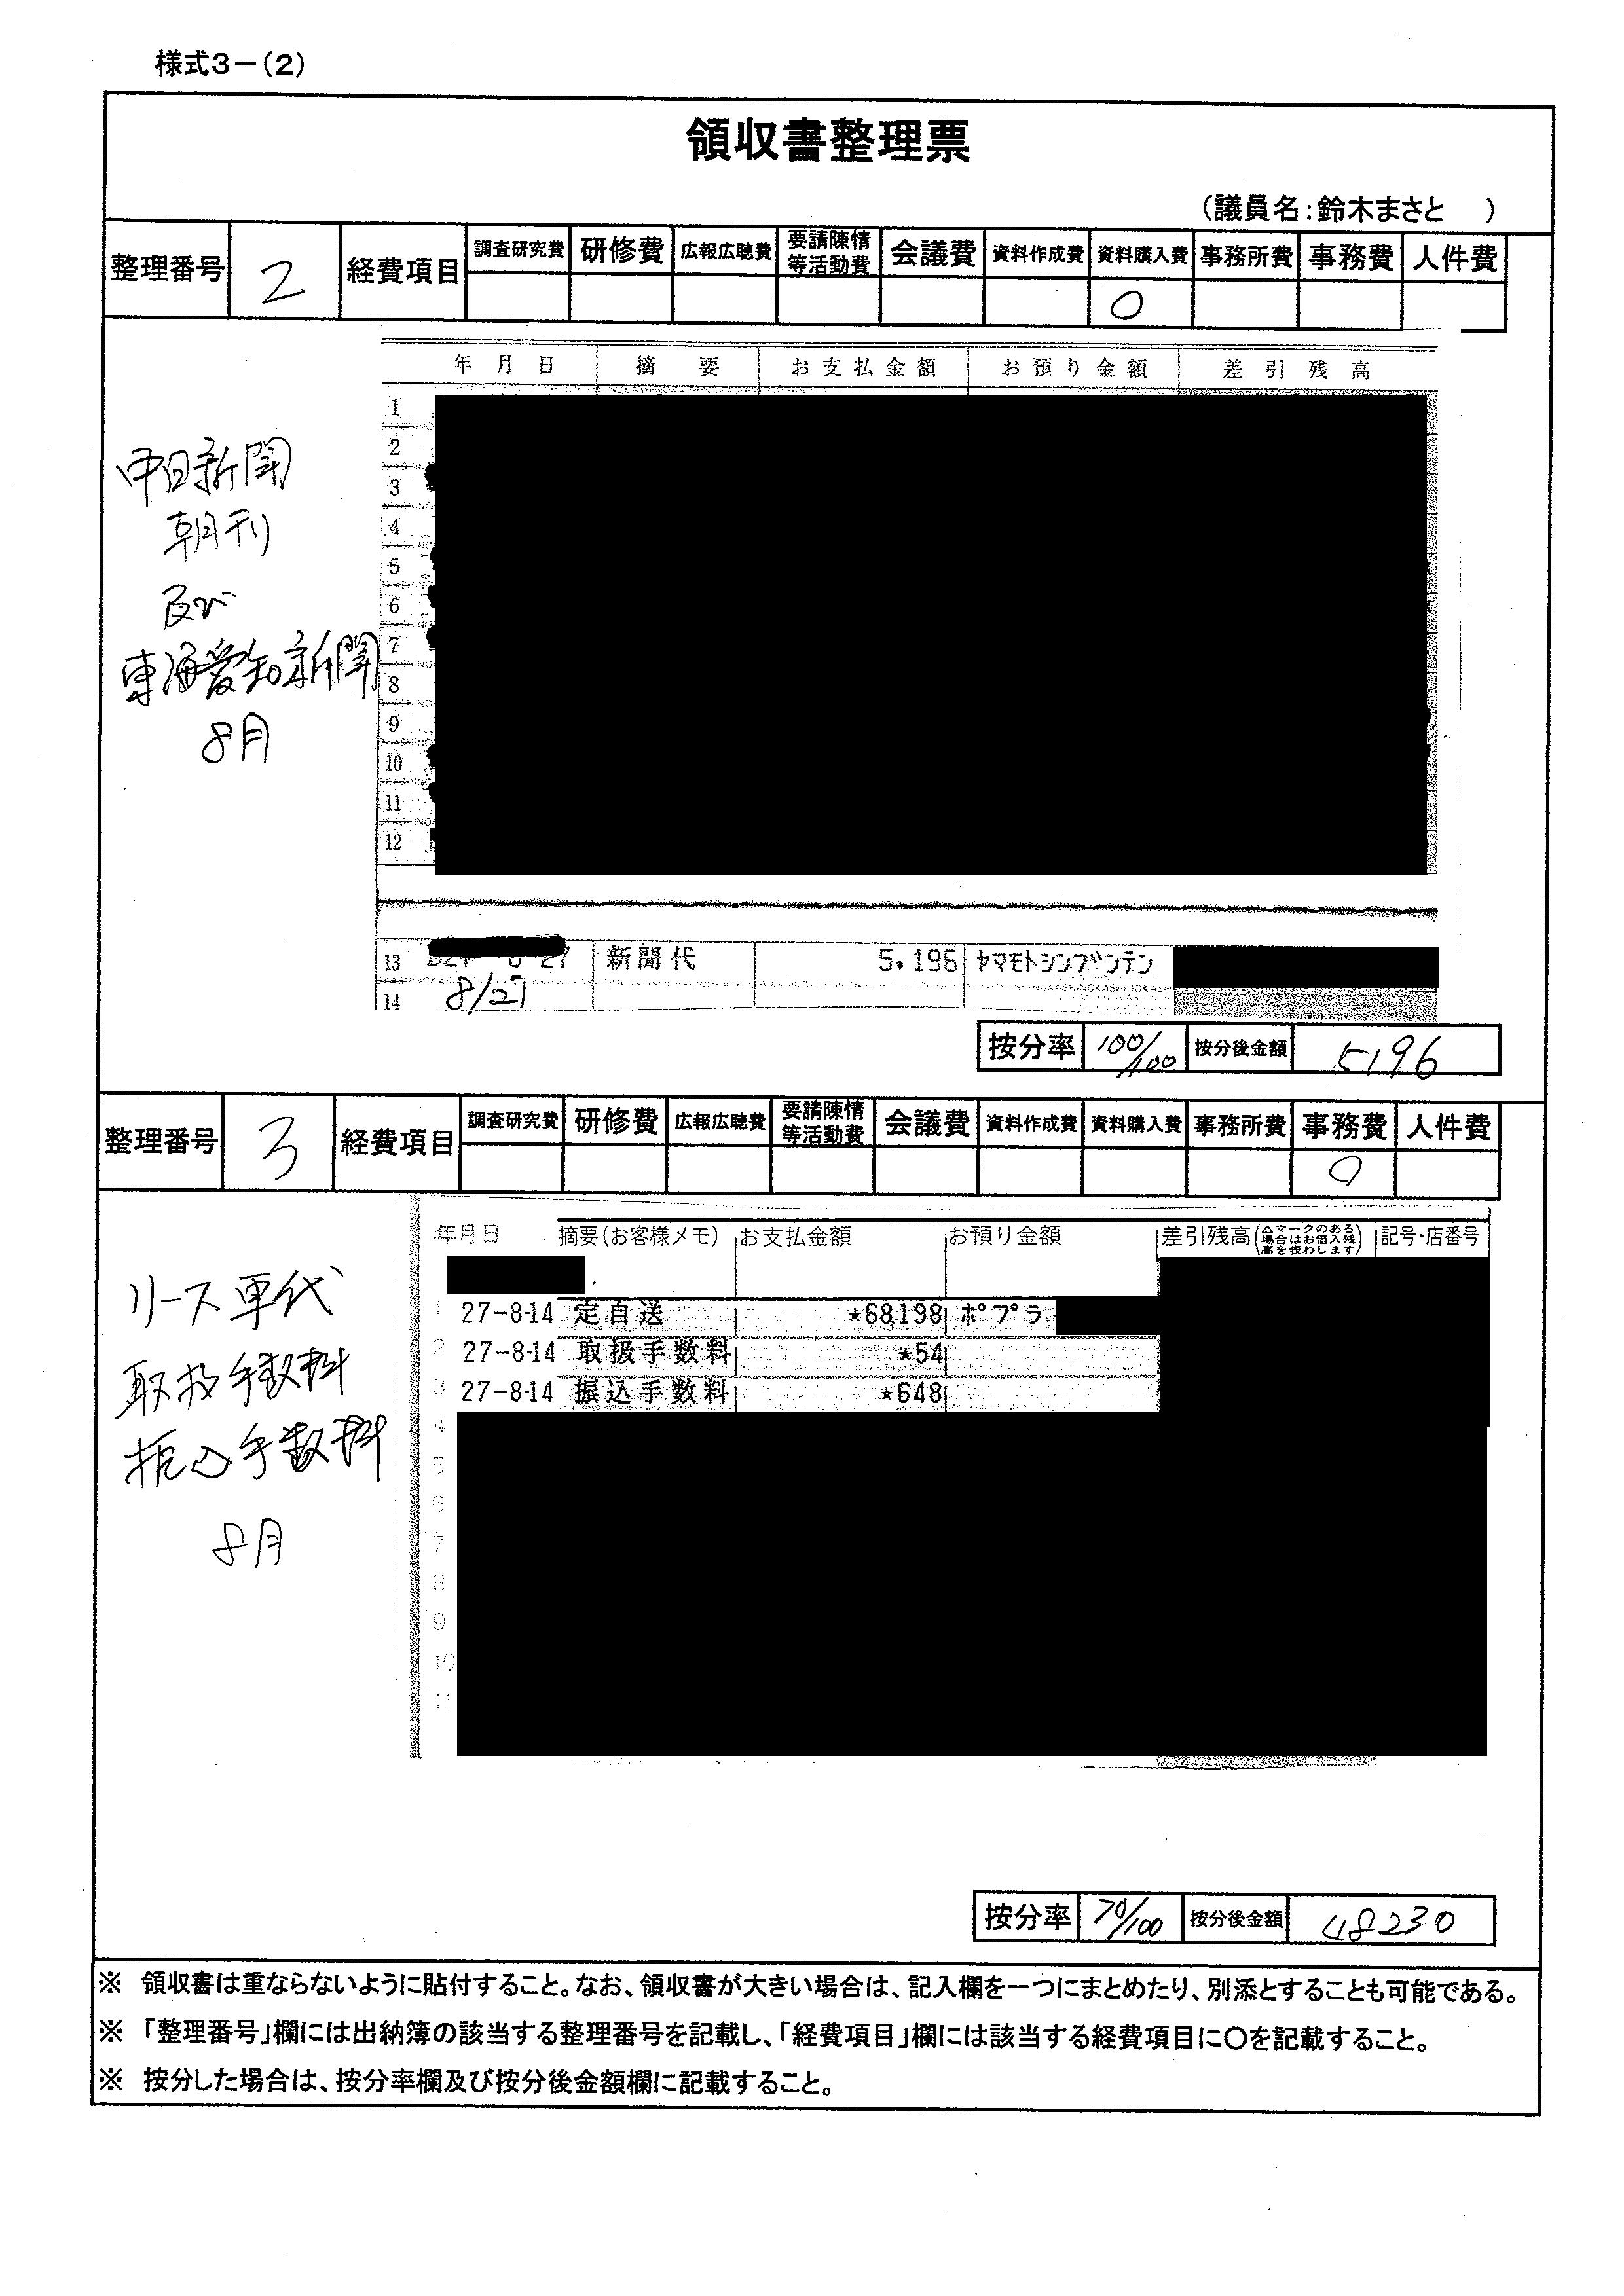 様式3-(2)
領収書整理票
(議員名:鈴木まさと　)
整理番号 2 経費項目 調査研究費 研修費 広報広聴費 要請陳情等活動費 会議費 資料作成費 資料購入費 事務所費 事務費 人件費
○
年月日 摘要 お支払金額 お預り金額 差引残高
1
2
3
4
5
6
7
8
9
10
11
12
中日新聞
朝刊
及び
東海愛知新聞
8月
13 新聞代 5,196 ヤマモトシンブンテン
14 8/27
按分率 100/100 按分後金額 5196
整理番号 3 経費項目 調査研究費 研修費 広報広聴費 要請陳情等活動費 会議費 資料作成費 資料購入費 事務所費 事務費 人件費
○
年月日 摘要(お客様メモ) お支払金額 お預り金額 差引残高(△マークのある場合はお借入残高を表わします) 記号・店番号
1 27-8-14 定自送 *68,198 ポプラ
2 27-8-14 取扱手数料 *54
3 27-8-14 振込手数料 *648
4
5
6
7
8
9
10
11
リース車代
取扱手数料
振込手数料
8月
按分率 70/100 按分後金額 48230
※ 領収書は重ならないように貼付すること。なお、領収書が大きい場合は、記入欄を一つにまとめたり、別添とすることも可能である。
※ 「整理番号」欄には出納簿の該当する整理番号を記載し、「経費項目」欄には該当する経費項目に○を記載すること。
※ 按分した場合は、按分率欄及び按分後金額欄に記載すること。